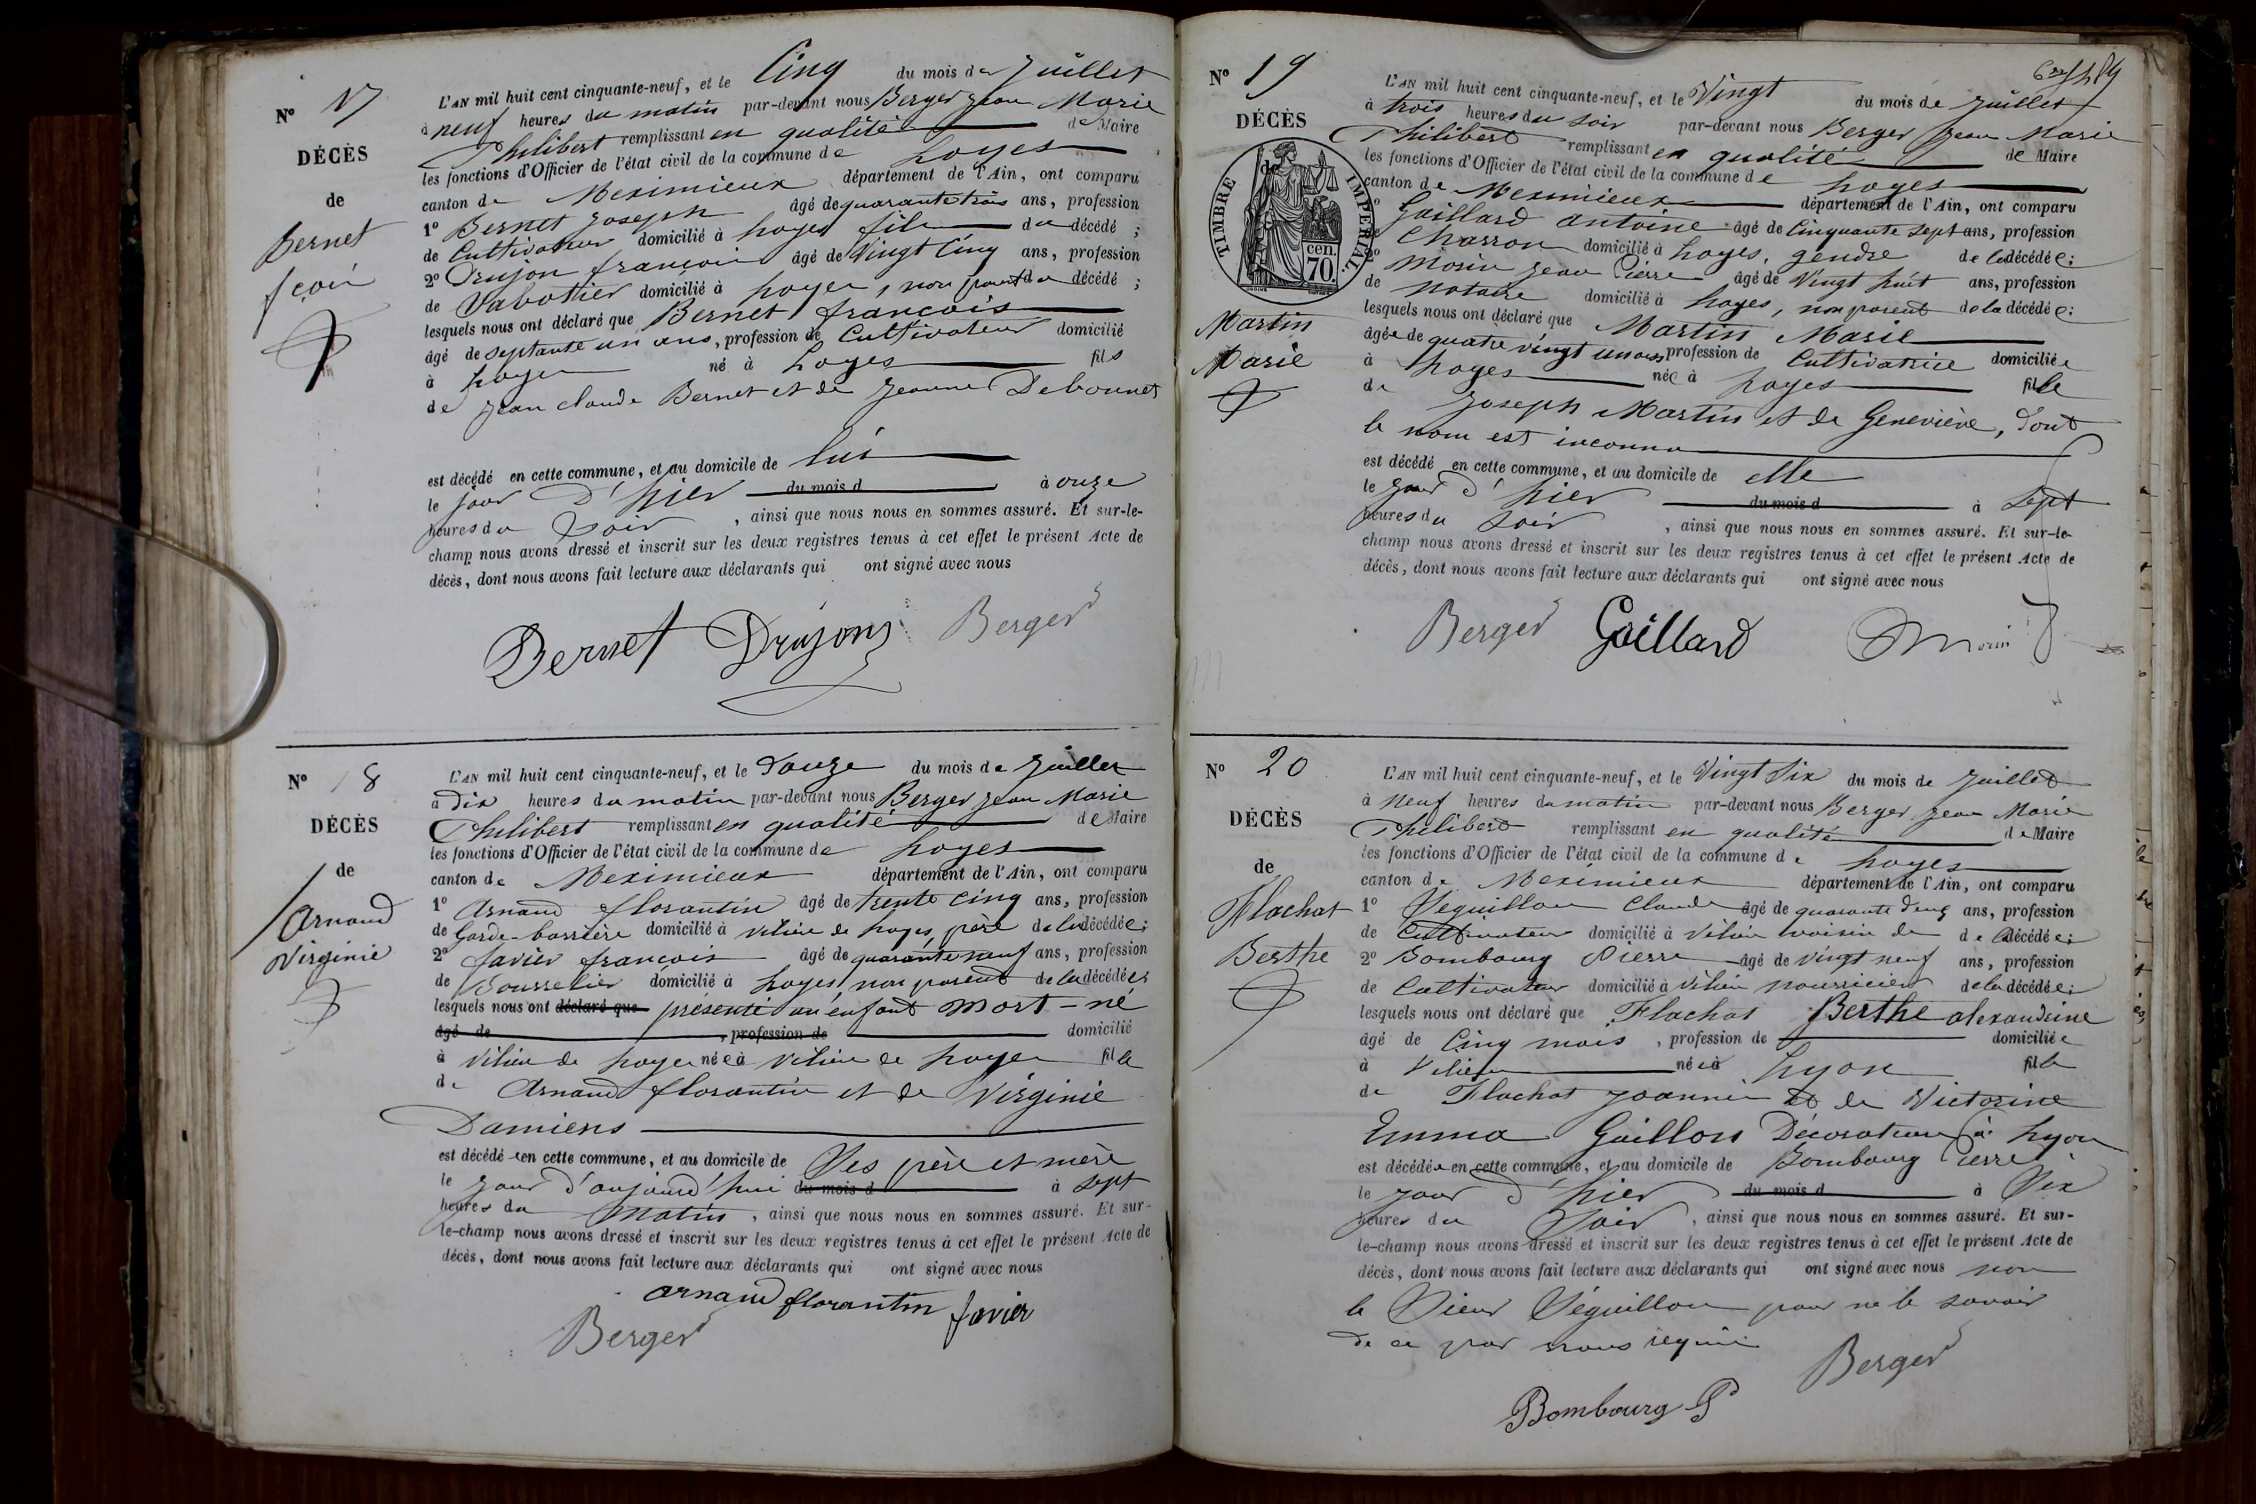 N° 17
DÉCÈS
de
Bernet
fçois
L'AN mil huit cent cinquante-neuf, et le Cinq du mois de Juillet
à neuf heures du matin par-devant nous Berger Jean Marie
Philibert remplissant en qualité de Maire
les fonctions d'Officier de l'état civil de la commune de Loyes
canton de Meximieux département de l'Ain, ont comparu
1° Bernet Joseph âgé de quarante trois ans, profession
de Cultivateur domicilié à Loyes fils du décédé ;
2° Drujon françois âgé de Vingt Cinq ans, profession
de Sabotier domicilié à Loyes, non parent du décédé ;
lesquels nous ont déclaré que Bernet françois
âgé de septante un ans, profession de Cultivateur domicilié
à Loyes né à Loyes fils
de Jean claude Bernet et de Jeanne Debonnet
est décédé en cette commune, et au domicile de lui
le jour d'hier du mois d à onze
heures du Soir, ainsi que nous nous en sommes assuré. Et sur-le-
champ nous avons dressé et inscrit sur les deux registres tenus à cet effet le présent Acte de
décès, dont nous avons fait lecture aux déclarants qui ont signé avec nous
Bernet Drujon Berger
N° 18
DÉCÈS
de
Arnaud
Virginie
L'AN mil huit cent cinquante-neuf, et le Douze du mois de Juillet
à dix heures du matin par-devant nous Berger Jean Marie
Philibert remplissant en qualité de Maire
les fonctions d'Officier de l'état civil de la commune de Loyes
canton de Meximieux département de l'Ain, ont comparu
1° Arnaud florantin âgé de trente cinq ans, profession
de Garde-barrière domicilié à Vilieu de Loyes, père de la décédée ;
2° favier françois âgé de quarante neuf ans, profession
de Bourrelier domicilié à Loyes, non parent de la décédée ;
lesquels nous ont déclaré que présenté un enfant mort-né
âgé de , profession de domicilié
à Vilieu de Loyes née à Vilieu de Loyes fille
de Arnaud florantin et de Virginie
Damiens
est décédé en cette commune, et au domicile de Ses père et mère
le jour d'aujourd'hui du mois d à sept
heures du matin, ainsi que nous nous en sommes assuré. Et sur-
le-champ nous avons dressé et inscrit sur les deux registres tenus à cet effet le présent Acte de
décès, dont nous avons fait lecture aux déclarants qui ont signé avec nous
arnaud florantin favier
Berger
N° 19
DÉCÈS
de
TIMBRE IMPERIAL.
cen.
70.
Martin
Marie
L'AN mil huit cent cinquante-neuf, et le Vingt du mois de Juillet
à trois heures du soir par-devant nous Berger Jean Marie
Philibert remplissant en qualité de Maire
les fonctions d'Officier de l'état civil de la commune de Loyes
canton de Meximieux département de l'Ain, ont comparu
1° Gaillard antoine âgé de Cinquante sept ans, profession
de Charron domicilié à Loyes, gendre de la décédée ;
2° Morin Jean Pierre âgé de Vingt huit ans, profession
de notaire domicilié à Loyes, non parent de la décédée ;
lesquels nous ont déclaré que Martin Marie
âgée de quatre vingt un ans profession de Cultivatrice domiciliée
à Loyes née à Loyes fille
de Joseph Martin et de Geneviève, dont
le nom est inconnu
est décédé en cette commune, et au domicile de elle
le jour d'hier du mois d à Sept
heures du Soir, ainsi que nous nous en sommes assuré. Et sur-le-
champ nous avons dressé et inscrit sur les deux registres tenus à cet effet le présent Acte de
décès, dont nous avons fait lecture aux déclarants qui ont signé avec nous
Berger Gaillard Morin
N° 20
DÉCÈS
de
Flachat
Berthe
L'AN mil huit cent cinquante-neuf, et le Vingt Six du mois de Juillet
à Neuf heures du matin par-devant nous Berger Jean Marie
Philibert remplissant en qualité de Maire
les fonctions d'Officier de l'état civil de la commune de Loyes
canton de Meximieux département de l'Ain, ont comparu
1° Séguillon Claude âgé de quarante deux ans, profession
de Cultivateur domicilié à Vilieu voisin de de la décédée ;
2° Bombourg Pierre âgé de vingt neuf ans, profession
de Cultivateur domicilié à Vilieu nourricier de la décédée ;
lesquels nous ont déclaré que Flachat Berthe alexandrine
âgé de Cinq mois, profession de domiciliée
à Vilieu née à Lyon fille
de Flachat Joannis et de Victorine
Emma Gaillon Décorateur à Lyon
est décédée en cette commune, et au domicile de Bombourg Pierre
le jour d'hier du mois d à Six
heures du Soir, ainsi que nous nous en sommes assuré. Et sur-
le-champ nous avons dressé et inscrit sur les deux registres tenus à cet effet le présent Acte de
décès, dont nous avons fait lecture aux déclarants qui ont signé avec nous non
le Sieur Séguillon pour ne le savoir
de ce par nous requis
Berger
Bombourg P